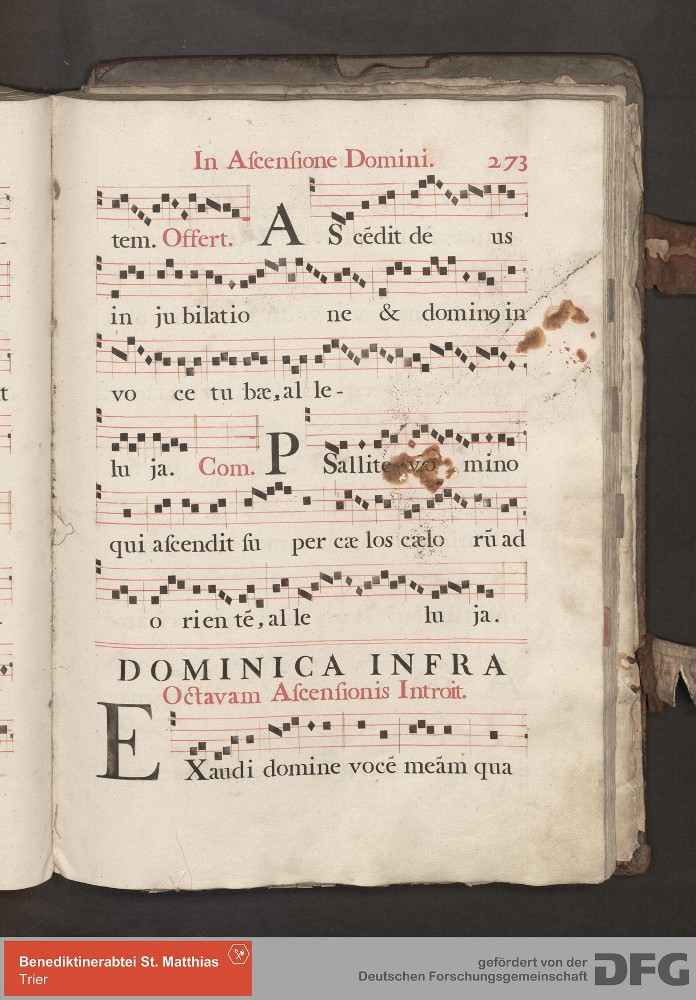 In Aſcenſione Domini. 273
tem. Offert. AS cēdit de us
in ju bilatio ne & dominꝰ in
vo ce tu bæ, al le-
lu ja. Com. PSallite mino
qui aſcendit ſu per cæ los cælo rū ad
o rien tē, al le lu ja.
DOMINICA INFRA
Octavam Aſcenſionis Introit.
EXaudi domine vocē meām qua
t
Benediktinerabtei St. Matthias
Trier
gefördert von der
Deutschen Forschungsgemeinschaft
DFG